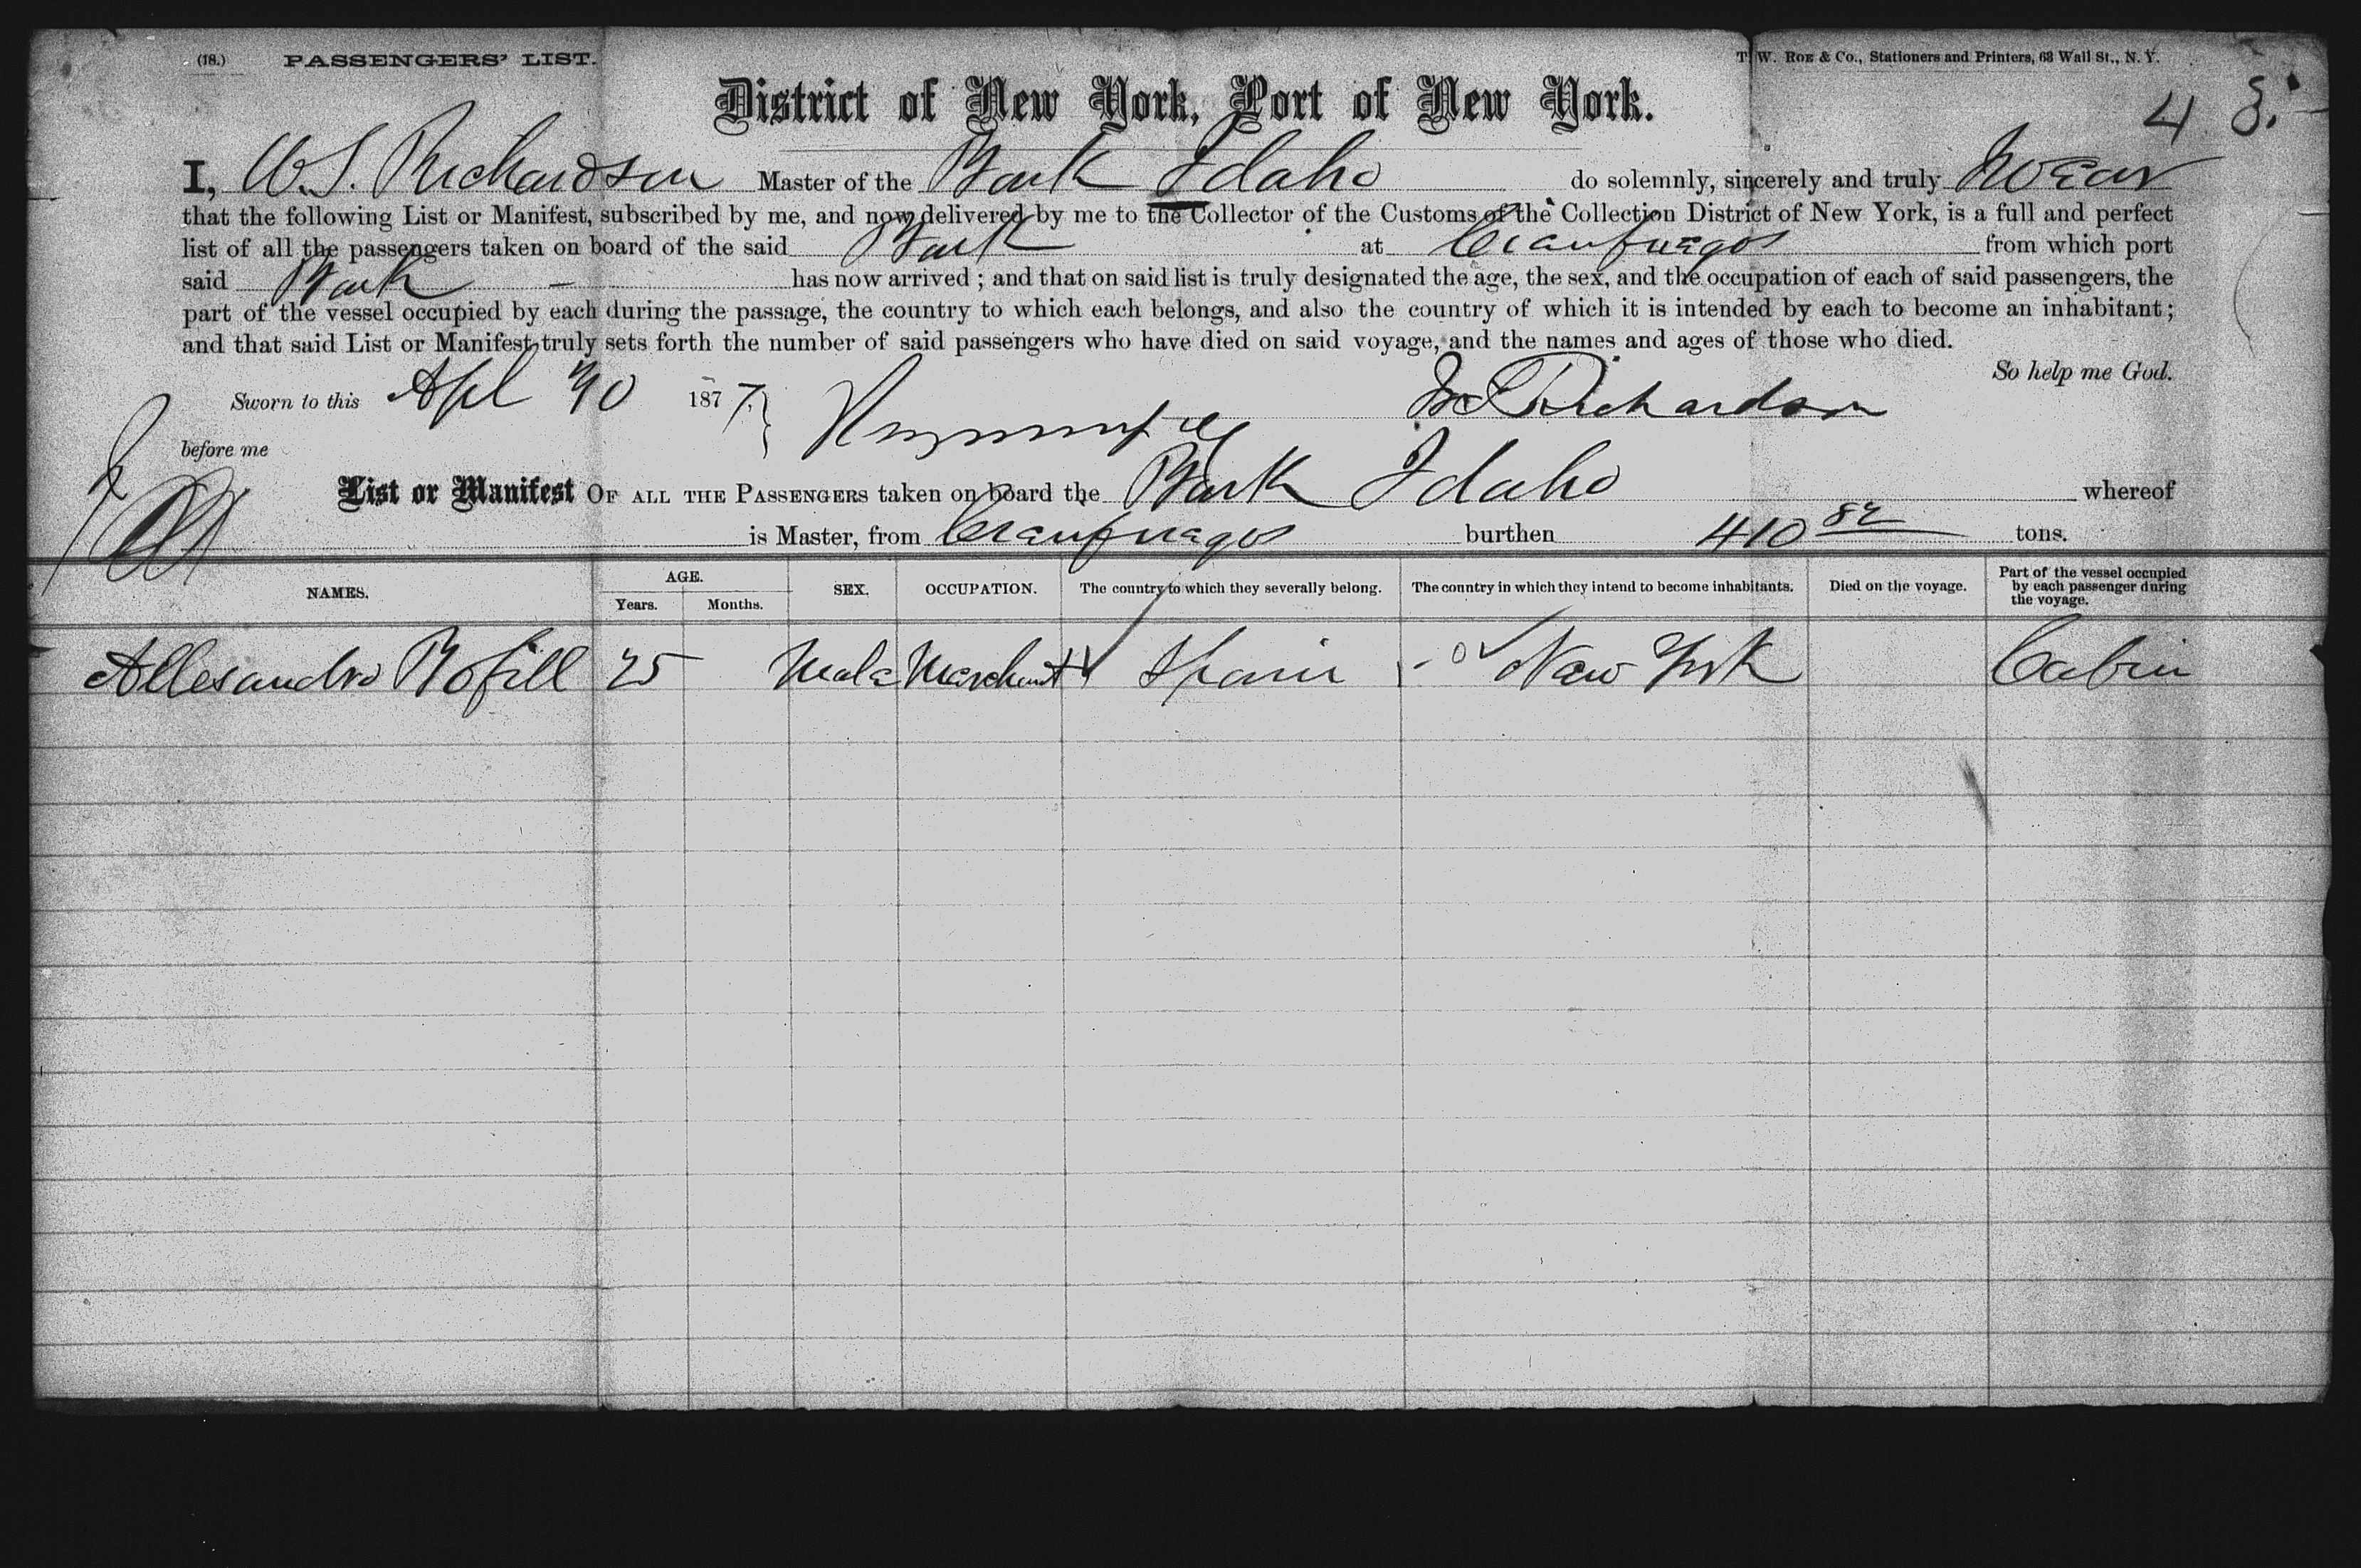 (18.) PASSENGERS' LIST. T. W. Roe & Co., Stationers and Printers, 63 Wall St., N. Y.
District of New York, Port of New York.
I, W. S. Richardson Master of the Bark Idaho do solemnly, sincerely and truly swear
that the following List or Manifest, subscribed by me, and now delivered by me to the Collector of the Customs of the Collection District of New York, is a full and perfect
list of all the passengers taken on board of the said Bark at Cienfuegos from which port
said Bark has now arrived ; and that on said list is truly designated the age, the sex, and the occupation of each of said passengers, the
part of the vessel occupied by each during the passage, the country to which each belongs, and also the country of which it is intended by each to become an inhabitant;
and that said List or Manifest truly sets forth the number of said passengers who have died on said voyage, and the names and ages of those who died.
So help me God.
Sworn to this Apl 187 7. W S Richardson
before me
List or Manifest OF ALL THE PASSENGERS taken on board the Bark Idaho whereof
is Master, from Cienfuegos burthen 410 82 tons.
NAMES. AGE. Years. Months. SEX. OCCUPATION. The country to which they severally belong. The country in which they intend to become inhabitants. Died on the voyage. Part of the vessel occupied by each passenger during the voyage.
Allesandro Bofill 25 Male Merchant Spain New York Cabin